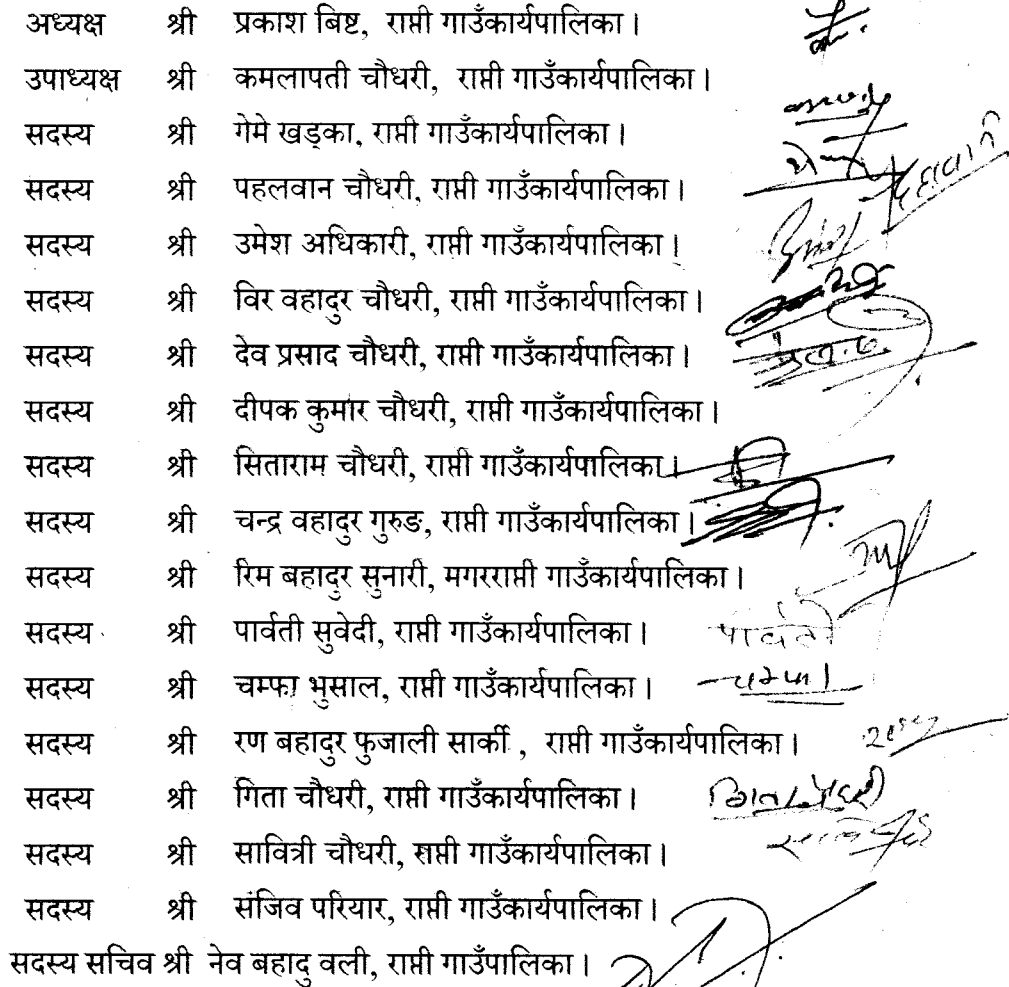 अध्यक्ष श्री प्रकाश बिष्ट, राप्ती गाउँकार्यपालिका।
उपाध्यक्ष श्री कमलापती चौधरी, राप्ती गाउँकार्यपालिका।
सदस्य श्री गेमे खड्का, राप्ती गाउँकार्यपालिका।
सदस्य श्री पहलवान चौधरी, राप्ती गाउँकार्यपालिका।
सदस्य श्री उमेश अधिकारी, राप्ती गाउँकार्यपालिका।
सदस्य श्री विर वहादुर चौधरी, राप्ती गाउँकार्यपालिका।
सदस्य श्री देव प्रसाद चौधरी, राप्ती गाउँकार्यपालिका।
सदस्य श्री दीपक कुमार चौधरी, राप्ती गाउँकार्यपालिका।
सदस्य श्री सिताराम चौधरी, राप्ती गाउँकार्यपालिका।
सदस्य श्री चन्द्र वहादुर गुरुङ, राप्ती गाउँकार्यपालिका।
सदस्य श्री रिम बहादुर सुनारी, मगरराप्ती गाउँकार्यपालिका।
सदस्य श्री पार्वती सुवेदी, राप्ती गाउँकार्यपालिका। पार्वती
सदस्य श्री चम्फा भुसाल, राप्ती गाउँकार्यपालिका। चम्फा
सदस्य श्री रण बहादुर फुजाली सार्की , राप्ती गाउँकार्यपालिका।
सदस्य श्री गिता चौधरी, राप्ती गाउँकार्यपालिका। गिता चौधरी
सदस्य श्री सावित्री चौधरी, राप्ती गाउँकार्यपालिका।
सदस्य श्री संजिव परियार, राप्ती गाउँकार्यपालिका।
सदस्य सचिव श्री नेव बहादु वली, राप्ती गाउँपालिका।